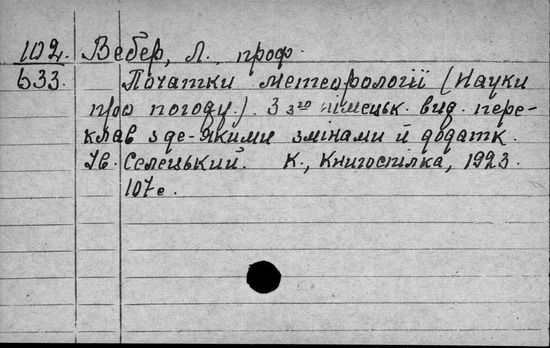 102. Вебер, Л. проф.
633. Початки метеорології (Науки
про погоду). З 3го німецьк. вид. пере-
клав з де-якими змінами й додатк.
Ів. Селецький. К., Книгоспілка, 1923.
107 с.